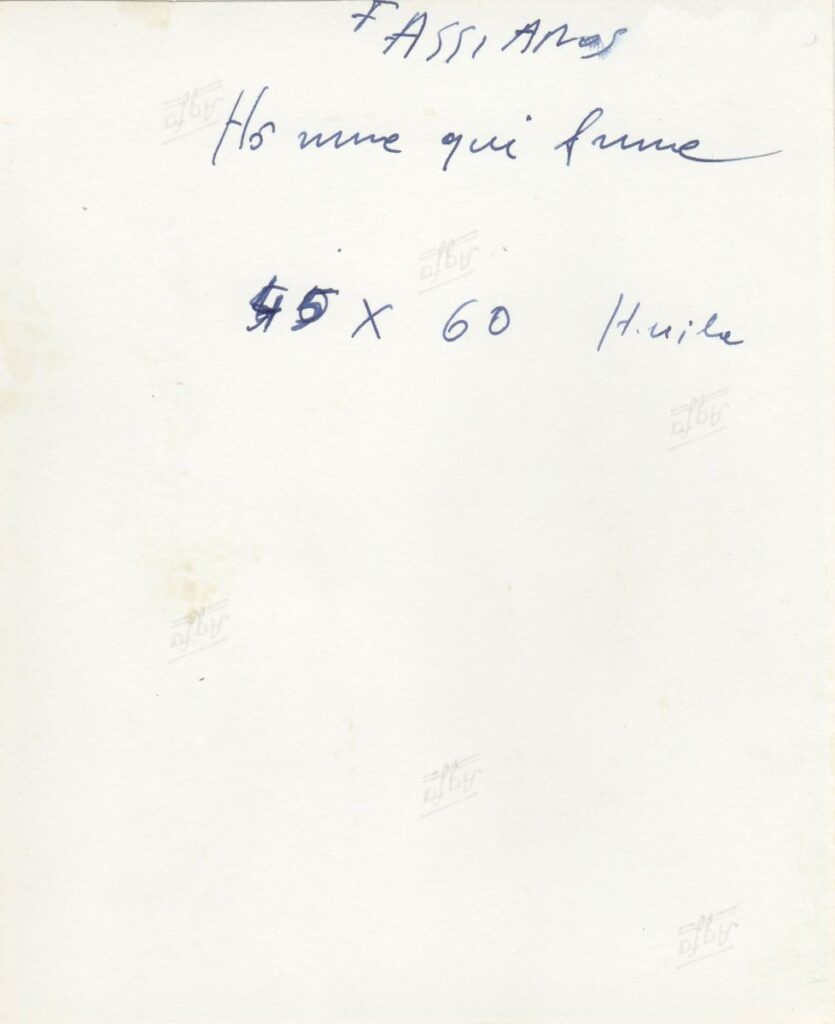 FASSIANOS
Agfa
Homme qui fume
Agfa
45 X 60 Huile
Agfa
Agfa
Agfa
Agfa